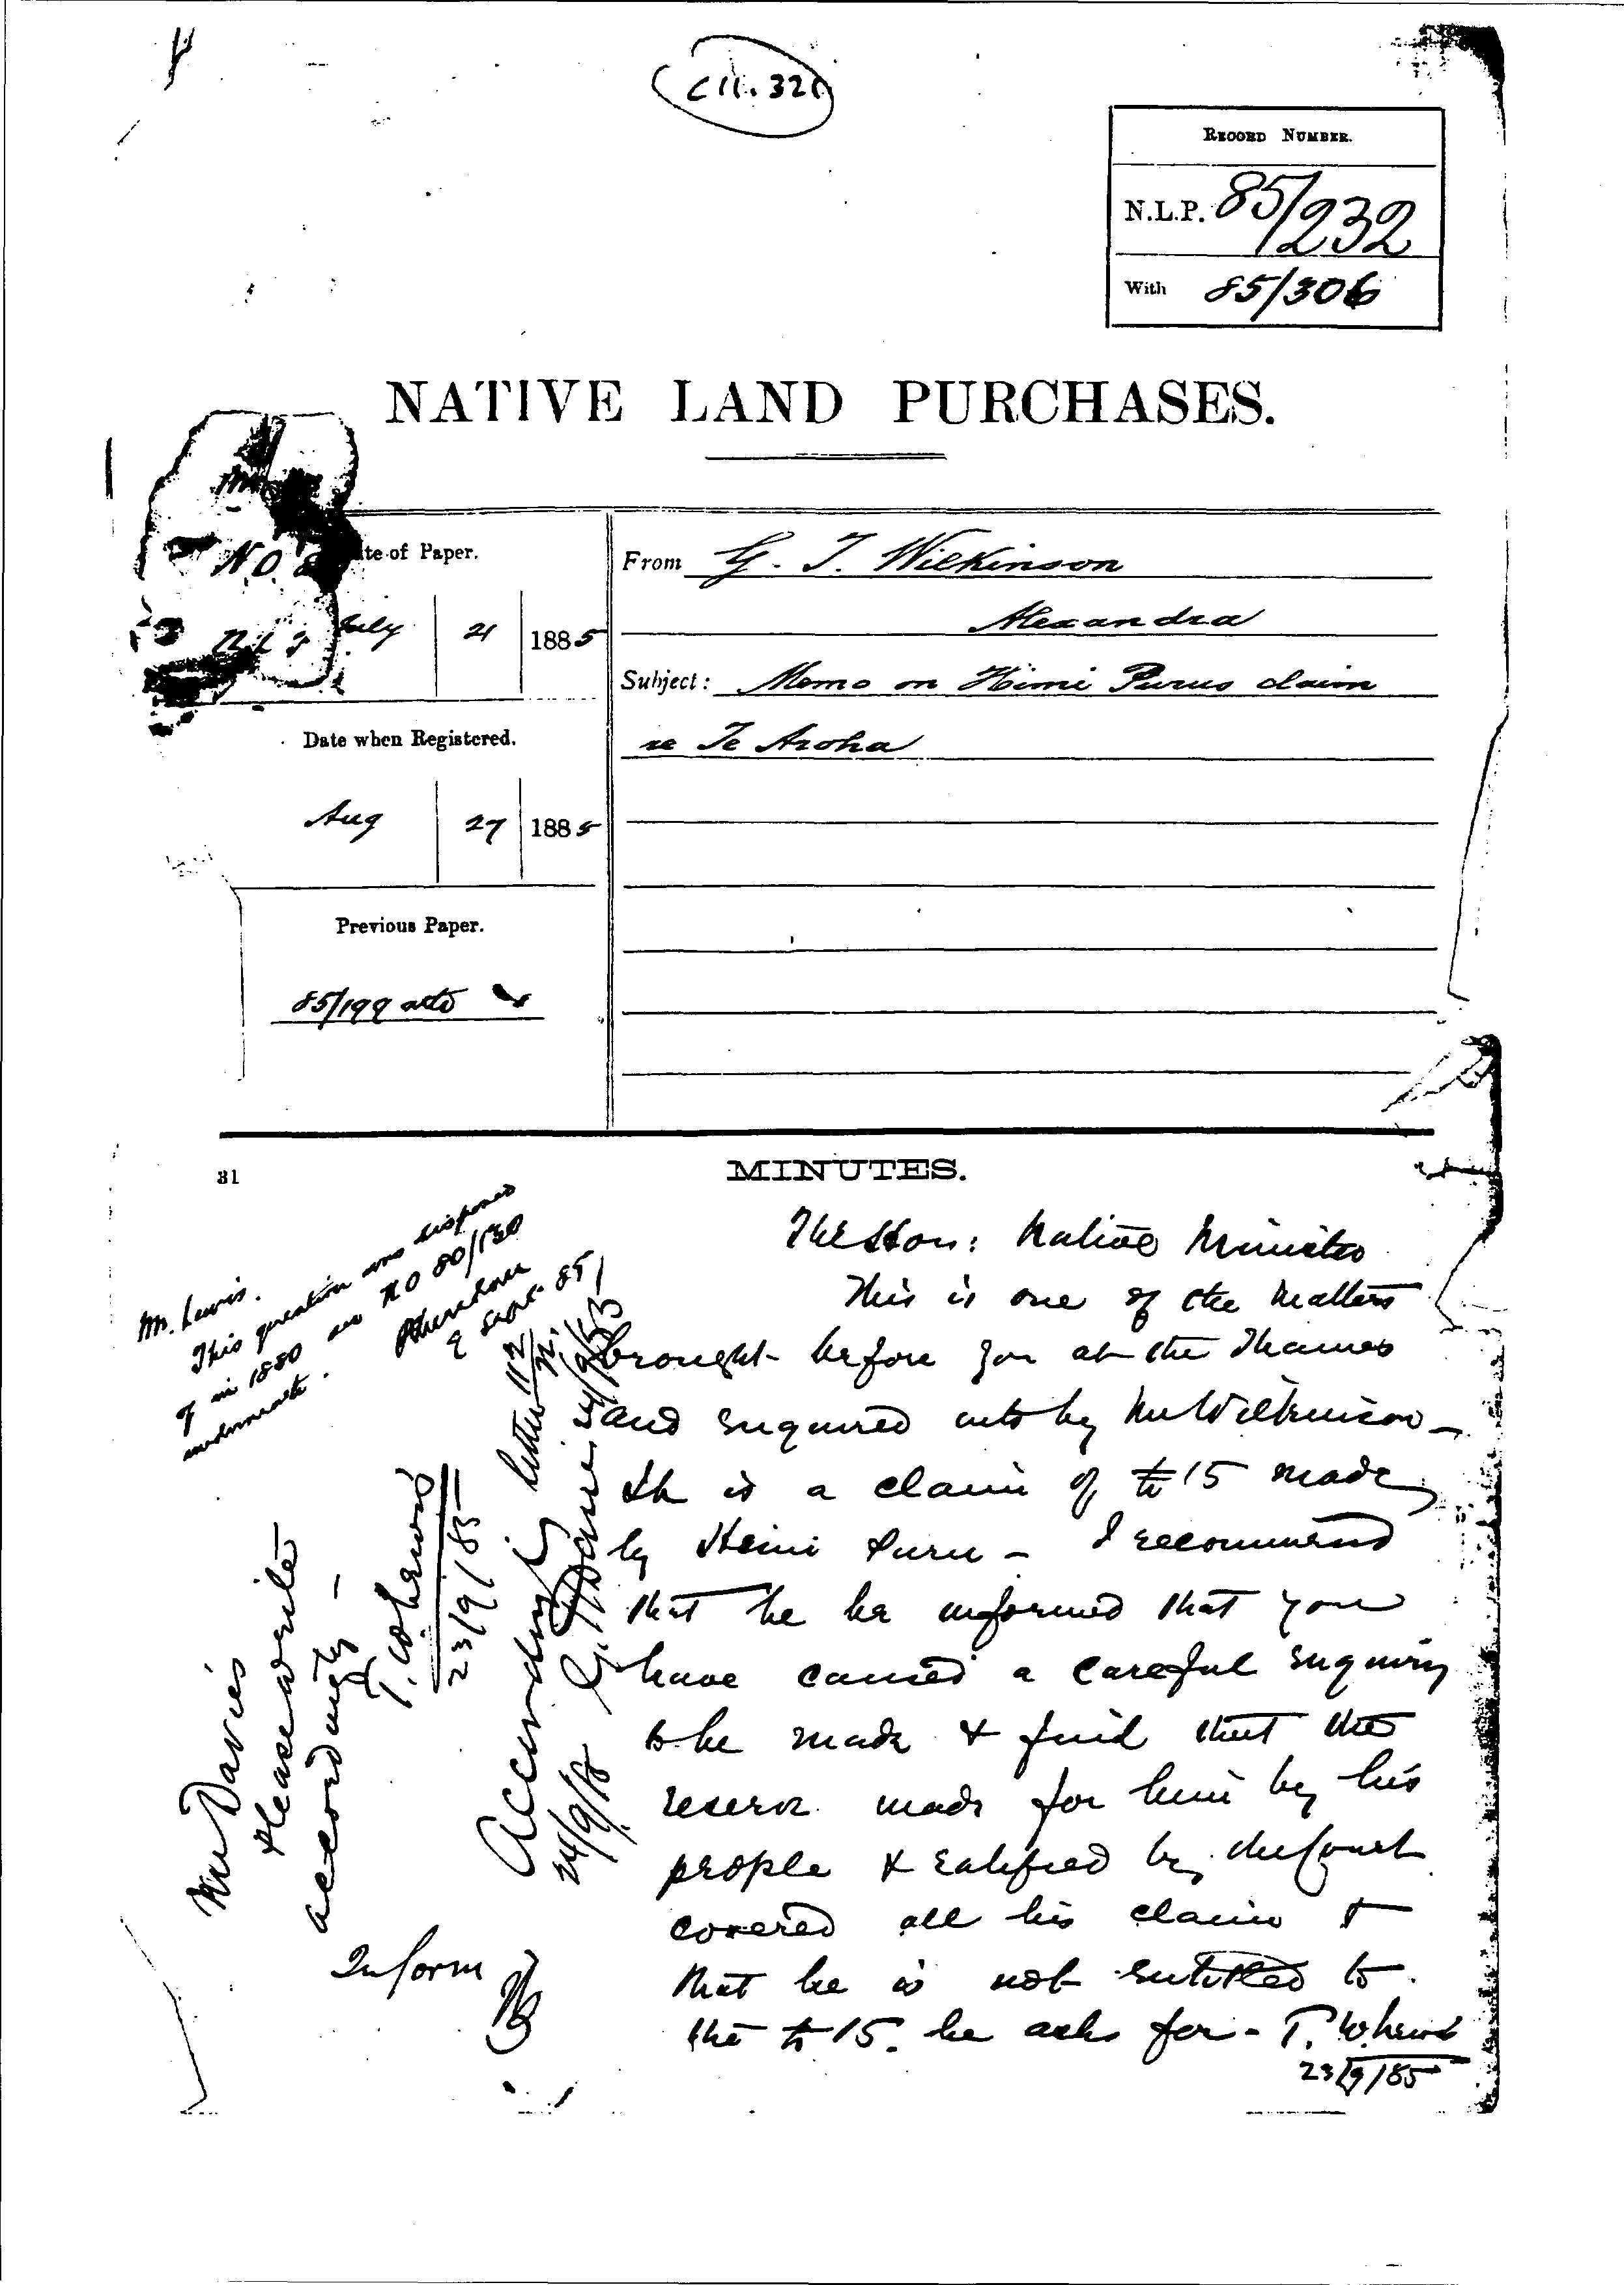 C11.320
RECORD NUMBER.
N.L.P. 85/232
With 85/306
NATIVE LAND PURCHASES.
Date of Paper.
July 21 1885
Date when Registered.
Aug 27 1885
Previous Paper.
85/199
From G. T. Wilkinson
Alexandra
Subject: Memo on Himi Purus claim
re Te Aroha
31
MINUTES.
Mr. Lewis.
This question was disposed
of in 1880 see NO 80/130
9 Sept. 85
The Hon: Native Minister
This is one of the matters
brought before you at the Thames
and enquired into by Mr Wilkinson –
It is a claim of £15 made
by Himi Puru – I recommend
that he be informed that you
have caused a careful enquiry
to be made & find that the
reserve made for him by his
people & ratified by the Court
covered all his claim &
that he is not entitled to
the £15. he asks for – T. W. Lewis
23/9/85
Mr Davies
Please write
accordingly –
T. W. Lewis
23/9/85
Accordingly letter 112
24/9/85
Inform